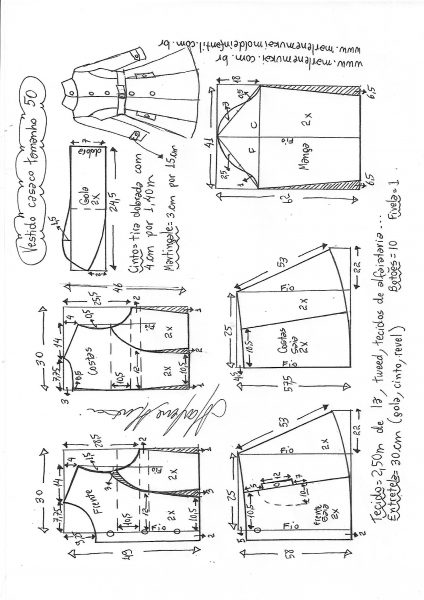 Vestido casaco tamanho 50
www.marlenemukai.com.br
www.marlenemukaimoldeinfantil.com.br
7
dobra
Gola
2x
24,5
Cinto = tira dobrada com
4 cm por 1,40m
Martingale = 3 cm por 15cm
18
41
F
C
Fio
2x
Manga
6,5
6,5
30
14
7,75
4
3
25,5
46
Costas
Fio
2x
10,5
12
2x
10,5
2
1
30
14
7,75
4
28,5
49
Frente
Fio
2x
10,5
12
2x
Fio
2
1
53
25
Fio
10,5
Costas
Saia
2x
Fio
57,5
22
53
25
Fio
10,5
Frente
Saia
2x
Fio
58
22
5
2
Tecido = 2,50m de lã, tweed, tecidos de alfaiataria...
Entretela = 30.cm (gola, cinto, revel)
Botões = 10
Fivela = 1